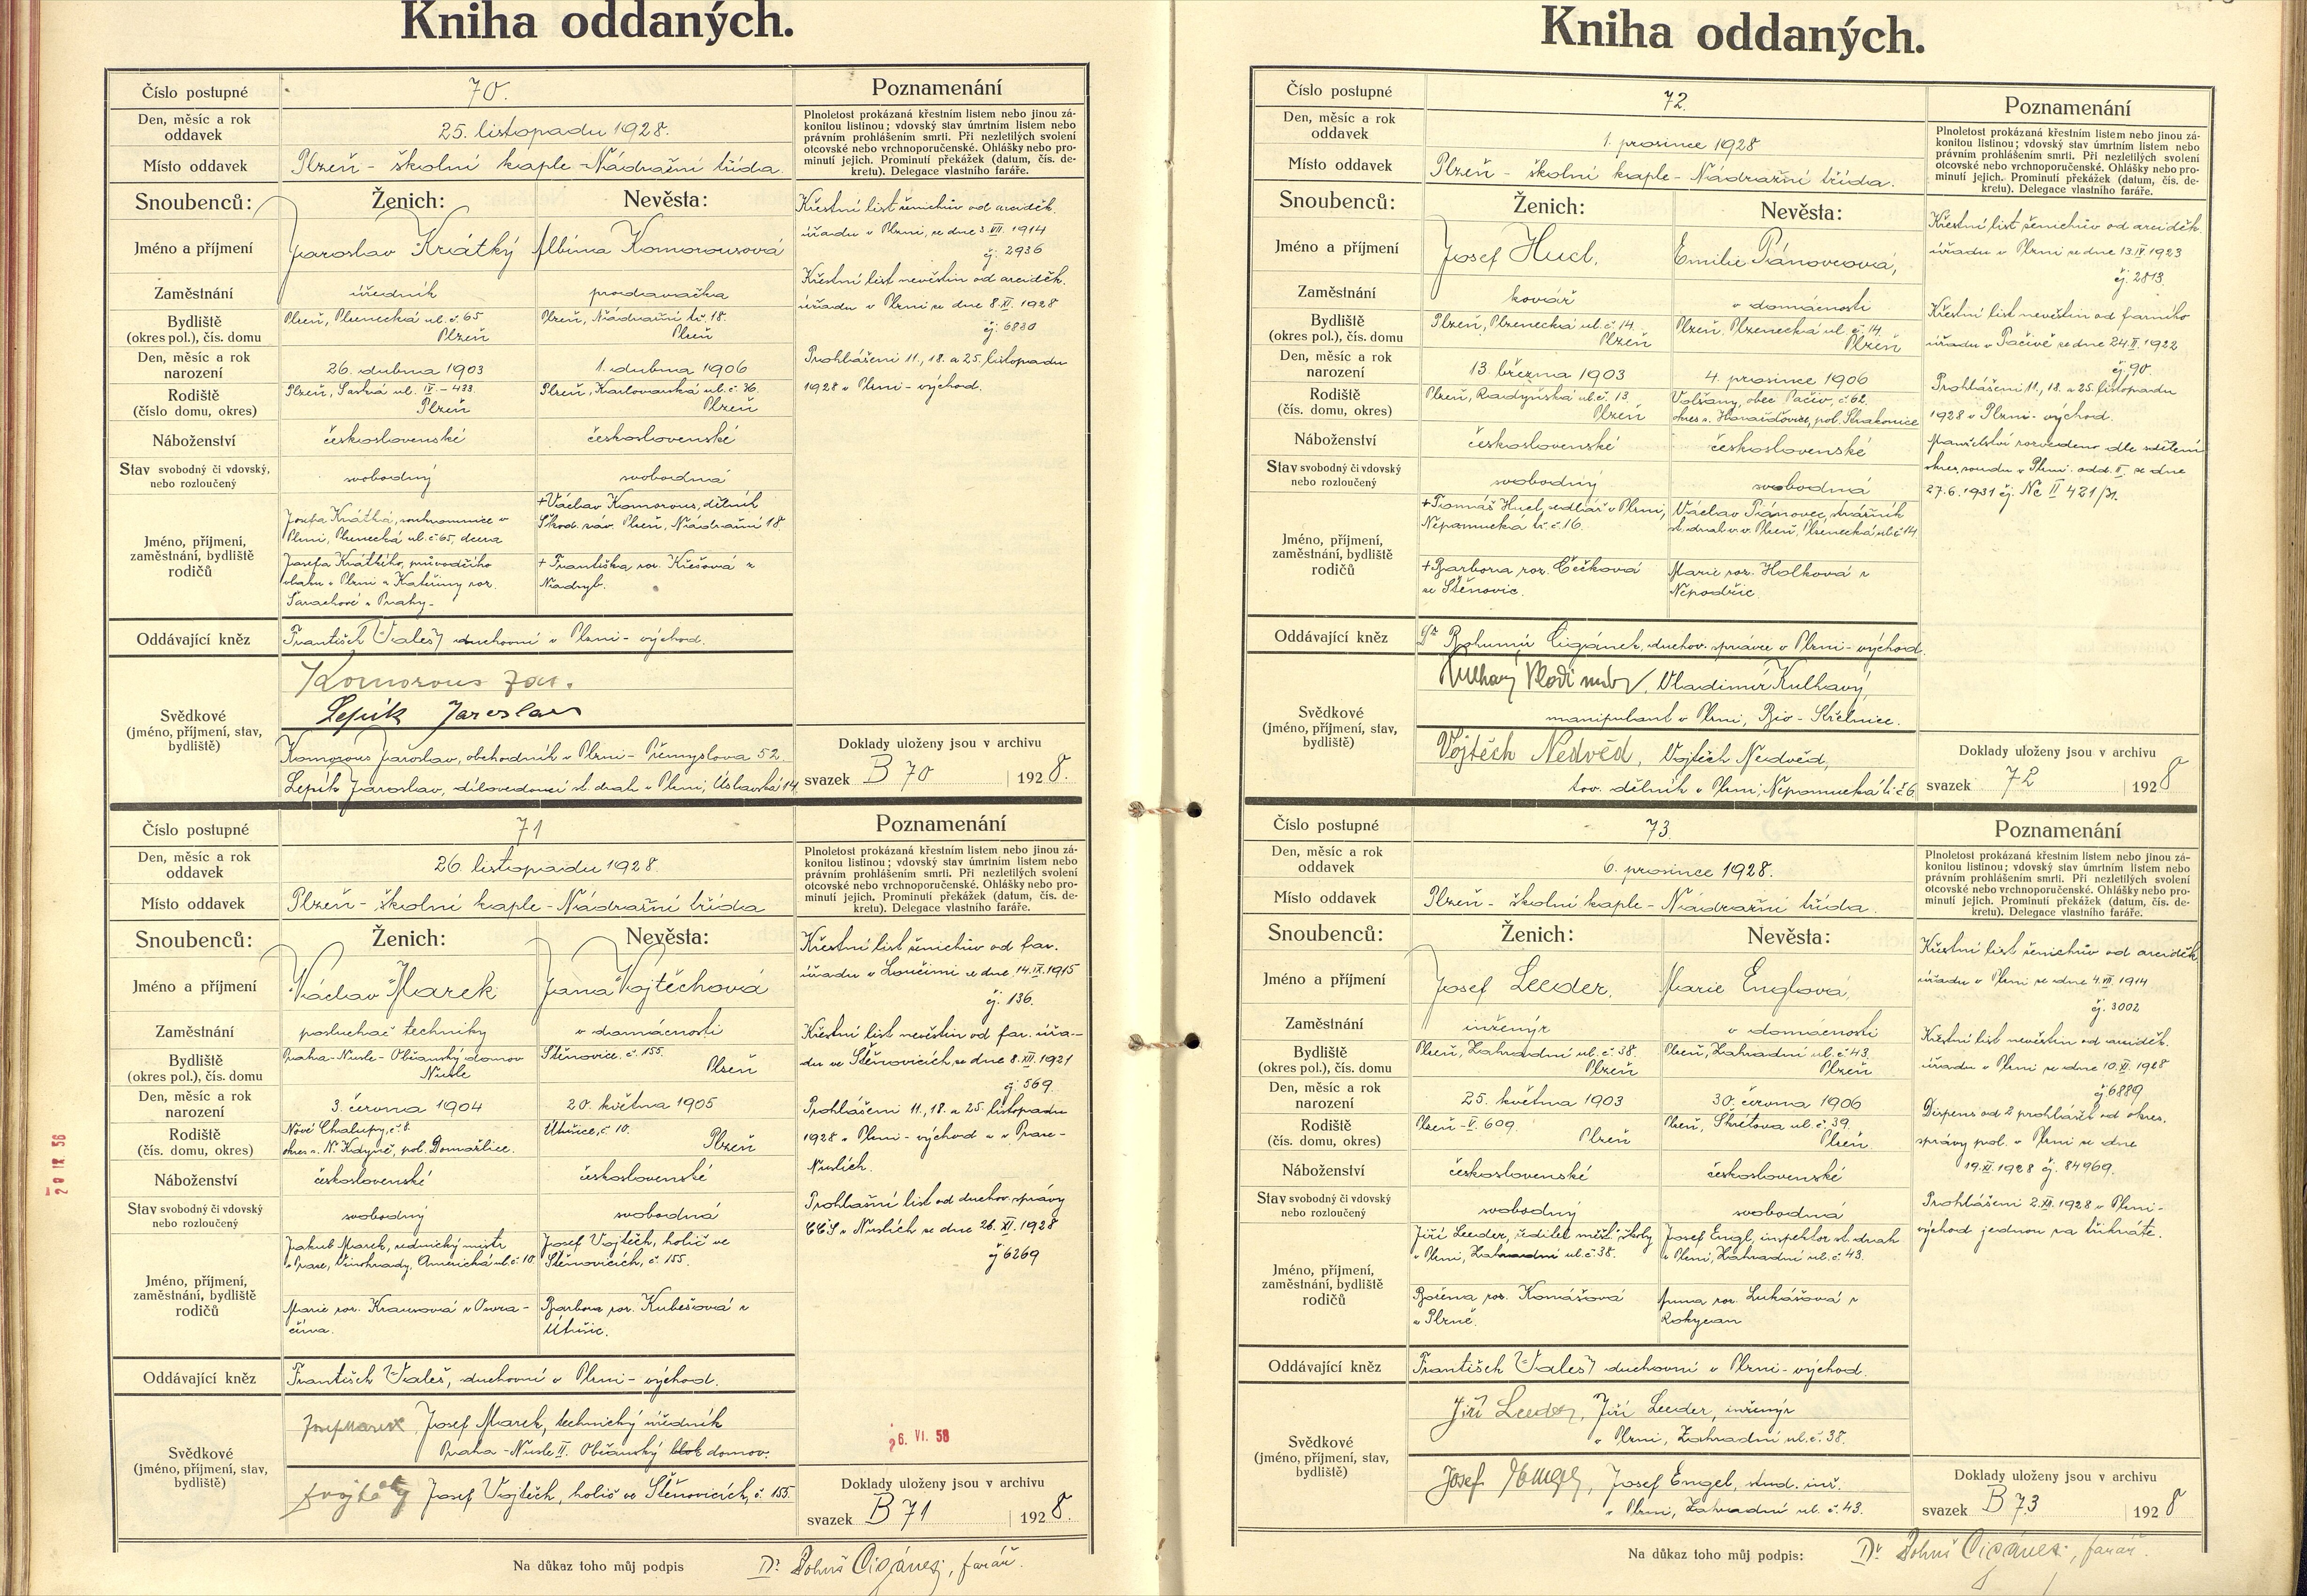 Kniha oddaných.
Číslo postupné
70.
Poznamenání
Den, měsíc a rok oddavek
25. listopadu 1928.
Plnoletost prokázaná křestním listem nebo jinou zá-
konitou listinou; vdovský stav úmrtním listem nebo
právním prohlášením smrti. Při nezletilých svolení
otcovské nebo vrchnoporučenské. Ohlášky nebo pro-
minutí jejich. Prominutí překážek (datum, čís. de-
kretu). Delegace vlastního faráře.
Místo oddavek
Plzeň - školní kaple - Nádražní třída.
Snoubenců:
Ženich:
Nevěsta:
Jméno a příjmení
Jaroslav Krátký
Albína Komorousová
Zaměstnání
úředník
prodavačka
Bydliště
(okres pol.), čís. domu
Plzeň, Plzenecká ul. č. 65
Plzeň
Plzeň, Nádražní tř. 18.
Plzeň
Den, měsíc a rok
narození
26. dubna 1903
1. dubna 1906
Rodiště
(číslo domu, okres)
Plzeň, Saská ul. IV. - 433
Plzeň
Plzeň, Karlovarská ul. č. 36.
Plzeň
Náboženství
československé
československé
Stav svobodný či vdovský,
nebo rozloučený
svobodný
svobodná
Jméno, příjmení,
zaměstnání, bydliště
rodičů
Josefa Krátká, soukromnice v
Plzni, Plzenecká ul. č. 65, dcera
Josefa Krátkého, průvodčího
vlaku v Plzni a Kateřiny roz.
z Prahy.
+ Václav Komorous, dělník
Škod. záv. Plzeň, Nádražní 18
+ Františka roz. Křešová z
Nadryb.
Křestní list ženichův od arciděk.
úřadu v Plzni, ze dne 3. VII. 1914
čj. 2936
Křestní list nevěstin od arciděk.
úřadu v Plzni ze dne 8. XI. 1928
čj. 6830
Prohlášeni 11., 18. a 25. listopadu
1928 v Plzni - východ.
Oddávající kněz
František Valeš, duchovní v Plzni - východ.
Svědkové
(jméno, příjmení, stav,
bydliště)
Komorous Jar.
Lepík Jaroslav
Komorous Jaroslav, obchodník v Plzni - Přemyslova 52.
Lepík Jaroslav, dílovedoucí st. drah v Plzni, Úslavská 14.
Doklady uloženy jsou v archivu
svazek B 70 1928.
Číslo postupné
71
Poznamenání
Den, měsíc a rok
oddavek
26. listopadu 1928.
Plnoletost prokázaná křestním listem nebo jinou zá-
konitou listinou; vdovský stav úmrtním listem nebo
právním prohlášením smrti. Při nezletilých svolení
otcovské nebo vrchnoporučenské. Ohlášky nebo pro-
minutí jejich. Prominutí překážek (datum, čís. de-
kretu). Delegace vlastního faráře.
Místo oddavek
Plzeň - školní kaple - Nádražní třída
Snoubenců:
Ženich:
Nevěsta:
Jméno a příjmení
Václav Marek
Jana Vojtěchová
Zaměstnání
posluchač techniky
v domácnosti
Bydliště
(okres pol.), čís. domu
Praha - Nusle - Občanský domov
Nusle
Štěnovice č. 155.
Plzeň
Den, měsíc a rok
narození
3. června 1904
20. května 1905
Rodiště
(čís. domu, okres)
Nové Chalupy, č. 8.
okres s. N. Kdyně, pol. Domažlice.
Útušice, č. 10.
Plzeň
Náboženství
československé
československé
Stav svobodný či vdovský
nebo rozloučený
svobodný
svobodná
Jméno, příjmení,
zaměstnání, bydliště
rodičů
Jakub Marek, zednický mistr
v Praze, Vinohrady, Americká ul. č. 10.
Marie roz. Krausová z
Josef Vojtěch, holič ve
Štěnovicích, č. 155.
Barbora roz. Kubešová z
Útušic.
Křestní list ženichův od far.
úřadu v Loučimi ze dne 14. IX. 1915
čj. 136.
Křestní list nevěstin od far. úřa-
du ve Štěnovicích, ze dne 8. XII. 1921
čj. 569.
Prohlášeni 11., 18. a 25. listopadu
1928 v Plzni - východ a v Praze -
Nuslích.
Prohlašní list od duchov. správy
CČS v Nuslích ze dne 26. XI. 1928
čj 6269
Oddávající kněz
František Valeš, duchovní v Plzni - východ.
Svědkové
(jméno, příjmení, stav,
bydliště)
Josef Marek Josef Marek, technický úředník
Praha - Nusle II. Občanský blok domov.
Josef Vojtěch, holič ve Štěnovicích, č. 155.
26. VI. 58
Doklady uloženy jsou v archivu
svazek B 71 1928.
Na důkaz toho můj podpis
Dr. Bohuš Cigánek, farář.
29 IX. 56
Kniha oddaných.
Číslo postupné
72.
Poznamenání
Den, měsíc a rok
oddavek
1. prosince 1928
Plnoletost prokázaná křestním listem nebo jinou zá-
konitou listinou; vdovský stav úmrtním listem nebo
právním prohlášením smrti. Při nezletilých svolení
otcovské nebo vrchnoporučenské. Ohlášky nebo pro-
minutí jejich. Prominutí překážek (datum, čís. de-
kretu). Delegace vlastního faráře.
Místo oddavek
Plzeň - školní kaple - Nádražní třída.
Snoubenců:
Ženich:
Nevěsta:
Jméno a příjmení
Josef Hucl,
Emilie Pánovcová,
Zaměstnání
kovář
v domácnosti
Bydliště
(okres pol.), čís. domu
Plzeň, Plzenecká ul. č. 14.
Plzeň
Plzeň, Plzenecká ul. č. 14.
Plzeň
Den, měsíc a rok
narození
13. března 1903
4. prosince 1906
Rodiště
(čís. domu, okres)
Plzeň, Radyňská ul. č. 13.
Plzeň
Volšany, obec Pačiv, č. 62.
okres s. Horažďovice, pol. Strakonice
Náboženství
československé
československé
Stav svobodný či vdovský
nebo rozloučený
svobodný
svobodná
Jméno, příjmení,
zaměstnání, bydliště
rodičů
+ Tomáš Hucl, sedlář v Plzni,
Nepomucká tř. č. 16.
+ Barbora roz. Čečková
ze Štěnovic.
Václav Pánovec, strážník
st. drah v v. Plzeň, Plzenecká ul. č. 14
Marie roz. Holková z
Nepodřic.
Křestní list ženichův od arciděk.
úřadu v Plzni ze dne 13. IV. 1923
čj. 2813.
Křestní list nevěstin od farního
úřadu v Pačivě ze dne 24. II. 1922
čj. 90.
Prohlášeni 11., 18. a 25. listopadu
1928 v Plzni - východ.
Manželství rozvedeno dle sdělení
okres. soudu v Plzni odd. II. ze dne
27. 6. 1931 čj. Nc II 421/31.
Oddávající kněz
Dr Bohumír Cigánek, duchov. správce v Plzni - východ.
Svědkové
(jméno, příjmení, stav,
bydliště)
Kulhavý Vladimír, Vladimír Kulhavý,
manipulant v Plzni, Bio - Střelnice.
Vojtěch Nedvěd, Vojtěch Nedvěd,
tov. dělník v Plzni, Nepomucká tř. č 6.
Doklady uloženy jsou v archivu
svazek 72 1928
Číslo postupné
73.
Poznamenání
Den, měsíc a rok
oddavek
6. prosince 1928.
Plnoletost prokázaná křestním listem nebo jinou zá-
konitou listinou; vdovský stav úmrtním listem nebo
právním prohlášením smrti. Při nezletilých svolení
otcovské nebo vrchnoporučenské. Ohlášky nebo pro-
minutí jejich. Prominutí překážek (datum, čís. de-
kretu). Delegace vlastního faráře.
Místo oddavek
Plzeň - školní kaple - Nádražní třída.
Snoubenců:
Ženich:
Nevěsta:
Jméno a příjmení
Josef Leeder,
Marie Englová,
Zaměstnání
inženýr
v domácnosti
Bydliště
(okres pol.), čís. domu
Plzeň, Zahradní ul. č. 38.
Plzeň
Plzeň, Zahradní ul. č. 43.
Plzeň
Den, měsíc a rok
narození
25. května 1903
30. června 1906
Rodiště
(čís. domu, okres)
Plzeň - V. 609.
Plzeň
Plzeň, Škrétova ul. č. 39.
Plzeň.
Náboženství
československé
československé
Stav svobodný či vdovský
nebo rozloučený
svobodný
svobodná
Jméno, příjmení,
zaměstnání, bydliště
rodičů
Jiří Leeder, ředitel měšť. školy
v Plzni, Zahradní ul. č. 38.
Božena roz. Komášová
z Plzně.
Josef Engl, inspektor st. drah
v Plzni, Zahradní ul. č. 43.
Anna roz. Lukášová z
Rokycan
Křestní list ženichův od arciděk.
úřadu v Plzni ze dne 4. VII. 1914
čj. 3002
Křestní list nevěstin od arciděk.
úřadu v Plzni ze dne 10. XI. 1928
čj 6889
Dispens od 2 prohlášek od okres.
správy pol. v Plzni ze dne
19. XI. 1928 čj. 84969.
Prohlášeni 2. XII. 1928 v Plzni -
východ jednou za třikráte.
Oddávající kněz
František Valeš, duchovní v Plzni - východ.
Svědkové
(jméno, příjmení, stav,
bydliště)
Jiří Leeder, Jiří Leeder, inženýr
v Plzni, Zahradní ul. č. 38.
Josef Engel, Josef Engel, stud. inž.
v Plzni, Zahradní ul. č. 43.
Doklady uloženy jsou v archivu
svazek B 73 1928
Na důkaz toho můj podpis:
Dr. Bohuš Cigánek, farář.